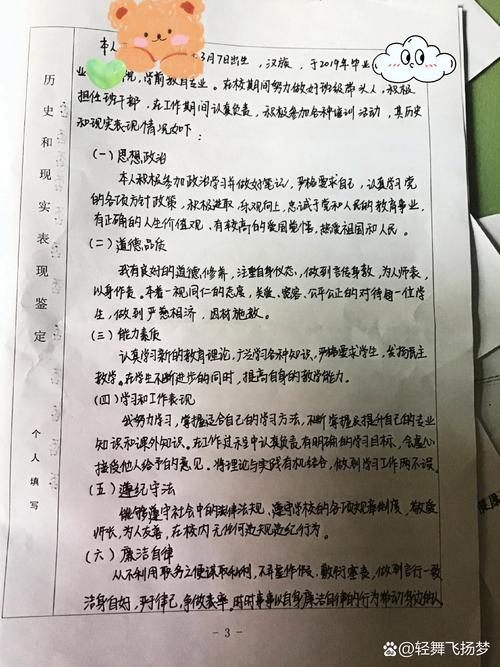 历史和现实表现鉴定
个人填写
本人
3月7日出生，汉族，于2019年毕业
业 院，学前教育专业。在校期间努力做好班级带头人，积极
担任班干部，在工作期间认真负责，积极参加各种培训活动，其历史
和现实表现情况如下：
(一)思想政治
本人积极参加政治学习并做好笔记，严格要求自己，认真学习党
的各项方针政策，积极进取，乐观向上，忠诚于党和人民的教育事业，
有正确的人生价值观、有较高的爱国觉悟，热爱祖国和人民。
(二)道德品质
我有良好的道德修养，注重自身仪态，做到言传身教，为人师表，
以身作责。本着一视同仁的态度，关爱、宽容、公平公正的对待每一位学
生，做到严慈相济，因材施教。
(三)能力素质
认真学习新的教育理论，广泛学习各种知识、严格要求学生，发扬民主
教学。在学生不断进步的同时，提高自身的教学能力。
(四)学习和工作表现
我努力学习，掌握适合自己的学习方法，不断掌握及提升自己的专业
知识和课外知识。在工作其示中认真负责有明确的学习目标，会虚心
接受他人给予的意见。将理论与实践有机结合，做到学习工作两不误。
(五)遵纪守法
能够遵守社会中的法律法规、遵守学校的各项规章制度，敬爱
师长，为人友善，在校内无任何违规违纪行为。
(六)廉洁自律
从不利用职务之便谋取私利，不弄虚作假、敷衍塞责，做到言行一致
洁身自好，严于律己，争做表率，时时事事以自身廉洁自律的行为带动身边的人
- 3 -
@轻舞飞扬梦